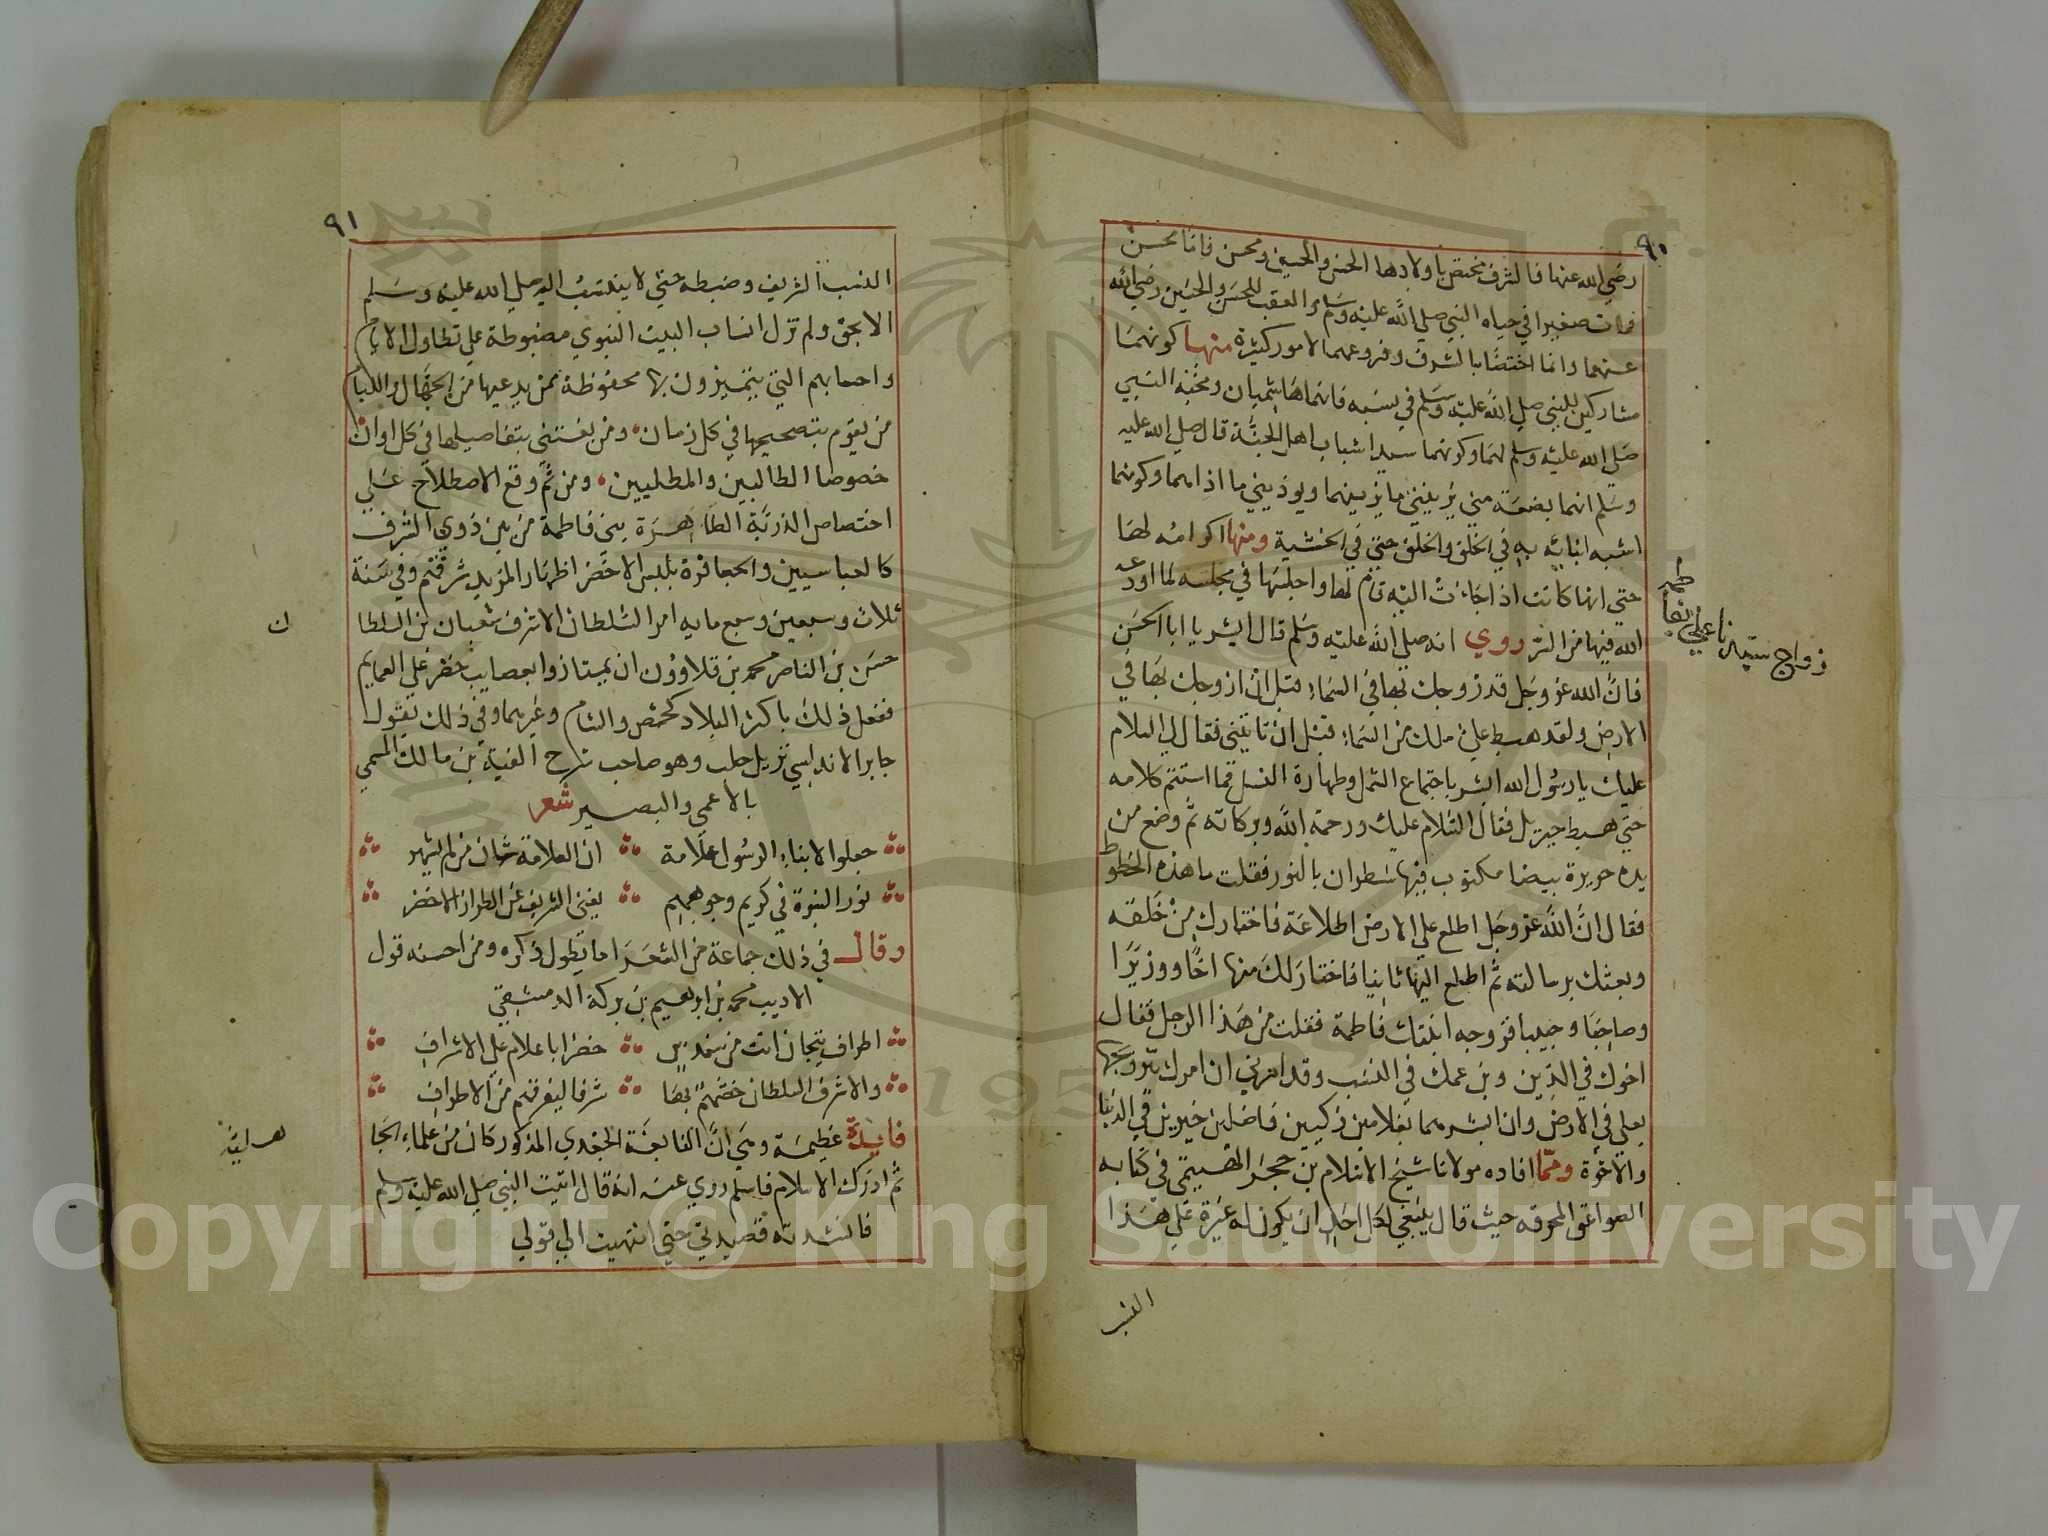 ٩٠
رضي الله عنها فالشرف مختص باولادها الحسن والحسين ومحسن فاما محسن
فمات صغيرا في حياه النبي صلي الله عليه وسلم والعقب للحسن والحسين رضي الله
عنهما وانما اختصا بالشرف وفروعهما لامور كثيرة منها كونهما
مشاركين للنبي صلي الله عليه وسلم في نسبه فانما هاشميان ومحبة النبي
صلي الله عليه وسلم لهما وكونهما سيدا شباب اهل الجنة قال صلي الله عليه
وسلم انها بضعة مني يريبني ما يريبها ويوذيني ما اذاها وكونها
اشبه ابنائه به في الخلق والخلق حتي في الخشية ومنها اكرامه لها
حتي انها كانت اذا جاءت اليه قام لها واجلسها في مجلسه لما اودعه
الله فيها من السر روي انه صلي الله عليه وسلم قال ابشر يا ابا الحسن
فان الله عز وجل قد زوجك بها في السماء قبل ان ازوجك بها في
الارض ولقد هبط علي ملك من السماء قبل ان تاتيني فقال لي السلام
عليك يا رسول الله ابشر باجتماع الشمل وطهارة النسل فما استتم كلامه
حتي هبط جبريل فقال السلام عليك ورحمة الله وبركاته ثم وضع من
يده حريرة بيضا مكتوب فيها سطران بالنور فقلت ما هذه الخطوط
فقال ان الله عز وجل اطلع علي الارض اطلاعة فاختارك من خلقه
وبعثك برسالته ثم اطلع اليها ثانيا فاختار لك منها اخا ووزيرا
وصاحبا وحبيبا فزوجه ابنتك فاطمة فقلت من هذا الرجل فقال
اخوك في الدين وبن عمك في النسب وقد امرني ان امرك بتزويجها
بعلي في الارض وان ابشرهما بغلامين زكيين فاضلين خيرين في الدنيا
والاخرة ومما افاده مولانا شيخ الاسلام بن حجر الهيتمي في كتابه
الصواعق المحرقه حيث قال ينبغي لكل احد ان يكون له غيرة علي هذا
النسب
زواج سيدنا علي بفاطمه
٩١
النسب الشريف وضبطه حتي لا ينتسب اليه صلي الله عليه وسلم
الا بحق ولم تزل انساب البيت النبوي مضبوطة علي تطاول الايام
واحسابهم التي يتميزون بها محفوظة ممن يدعيها من الجهال واللئام
من يقوم بتصحيحها في كل زمان ومن يعتني بتفاصيلها في كل اوان
خصوصا الطالبيين والمطلبيين ومن ثم وقع الاصطلاح علي
اختصاص الذرية الطاهرة ببني فاطمة من بين ذوي الشرف
كالعباسيين والجعافرة بلبس الاخضر اظهارا لمزيد شرفهم وفي سنة
ثلاث وسبعين وسبع مايه امر السلطان الاشرف شعبان بن السلطان
حسن بن الناصر محمد بن قلاوون ان يمتازوا بعصايب خضر علي العمايم
ففعل ذلك باكثر البلاد كحمص والشام وغيرهما وفي ذلك يقول
جابر الاندلسي نزيل حلب وهو صاحب شرح الفية بن مالك المسمي
بالاعمي والبصير شعر
جعلوا لابناء الرسول علامة ان العلامة شان من لم يشهر
نور النبوة في كريم وجوههم يغني الشريف عن الطراز الاخضر
وقال في ذلك جماعة من الشعرا ما يطول ذكره ومن احسنه قول
الاديب محمد بن ابراهيم بن بركة الدمشقي
اطراف تيجان اتت من سندس خضرا باعلام علي الاشراف
والاشرف السلطان خصهم بها شرفا ليفرقهم من الاطراف
فائدة عظيمة وهي ان النابغة الجعدي المذكور كان من علماء الجا
ثم ادرك الاسلام فاسلم روي عنه انه قال اتيت النبي صلي الله عليه وسلم
فانشدته قصيدتي حتي انتهيت الي قولي
ن
هليه
Copyright © King Saud University
195